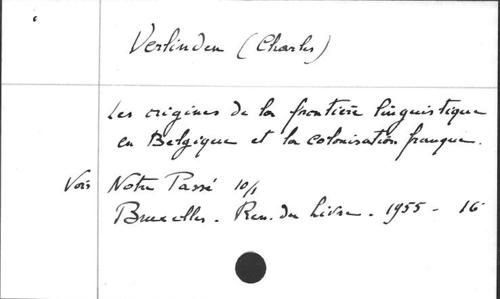 Verlinden (Charles)
Les origines de la frontière linguistique
en Belgique et la colonisation franque.
Voir Notre Passé 10/1
Bruxelles - Ren. du Livre - 1955 - 16°